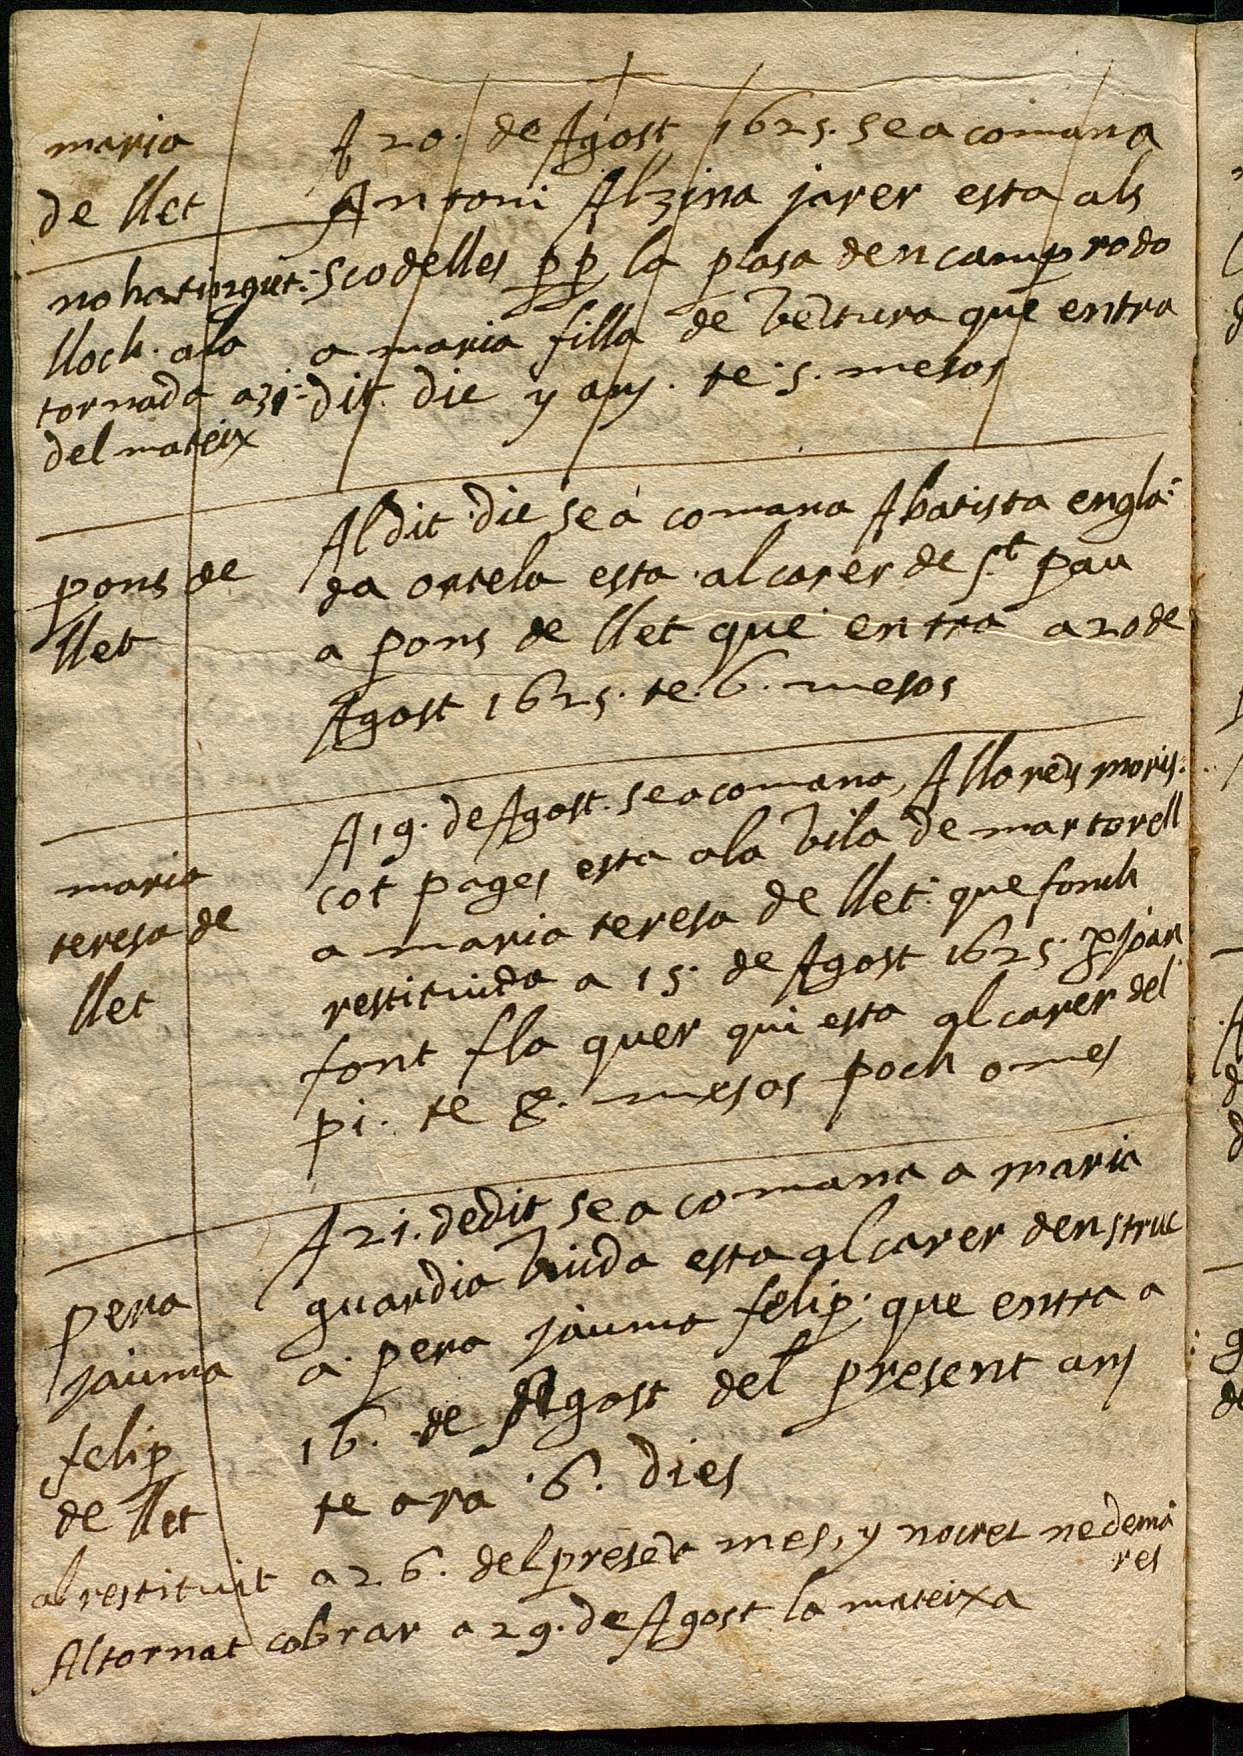 maria
de llet
no ha tingut
lloch. ala
tornada a 31
del mateix
A 20. de Agost 1625. se a comana
Antoni Alzina jarer esta als
scodelles pp la plasa den camprodo
a maria filla de ventura que entra
dit. die y any. te. 5. mesos
pons de
llet
Al dit die se a comana A batista engla
da ortela esta al carer de St pau
a pons de llet que entra a 20 de
Agost 1625. te. 6. mesos
maria
teresa de
llet
A 19. de Agost. se a comana, A llorens moris
cot pages esta ala vila de martorell
a maria teresa de llet. que fonch
restituida a 15. de Agost 1625. p joan
font fla quer qui esta al carer del
pi. te 8. mesos poch o mes
pera
jauma
felip
de llet
A 21. de dit se a comana a maria
guardia viuda esta al carer den struc
a pera jauma felip. que entra a
16. de Agost del present any
te ara 6. dies
al restituit a 26. del preset mes, y nocret ne dema
res
Al tornat cobrar a 29. de Agost la mateixa